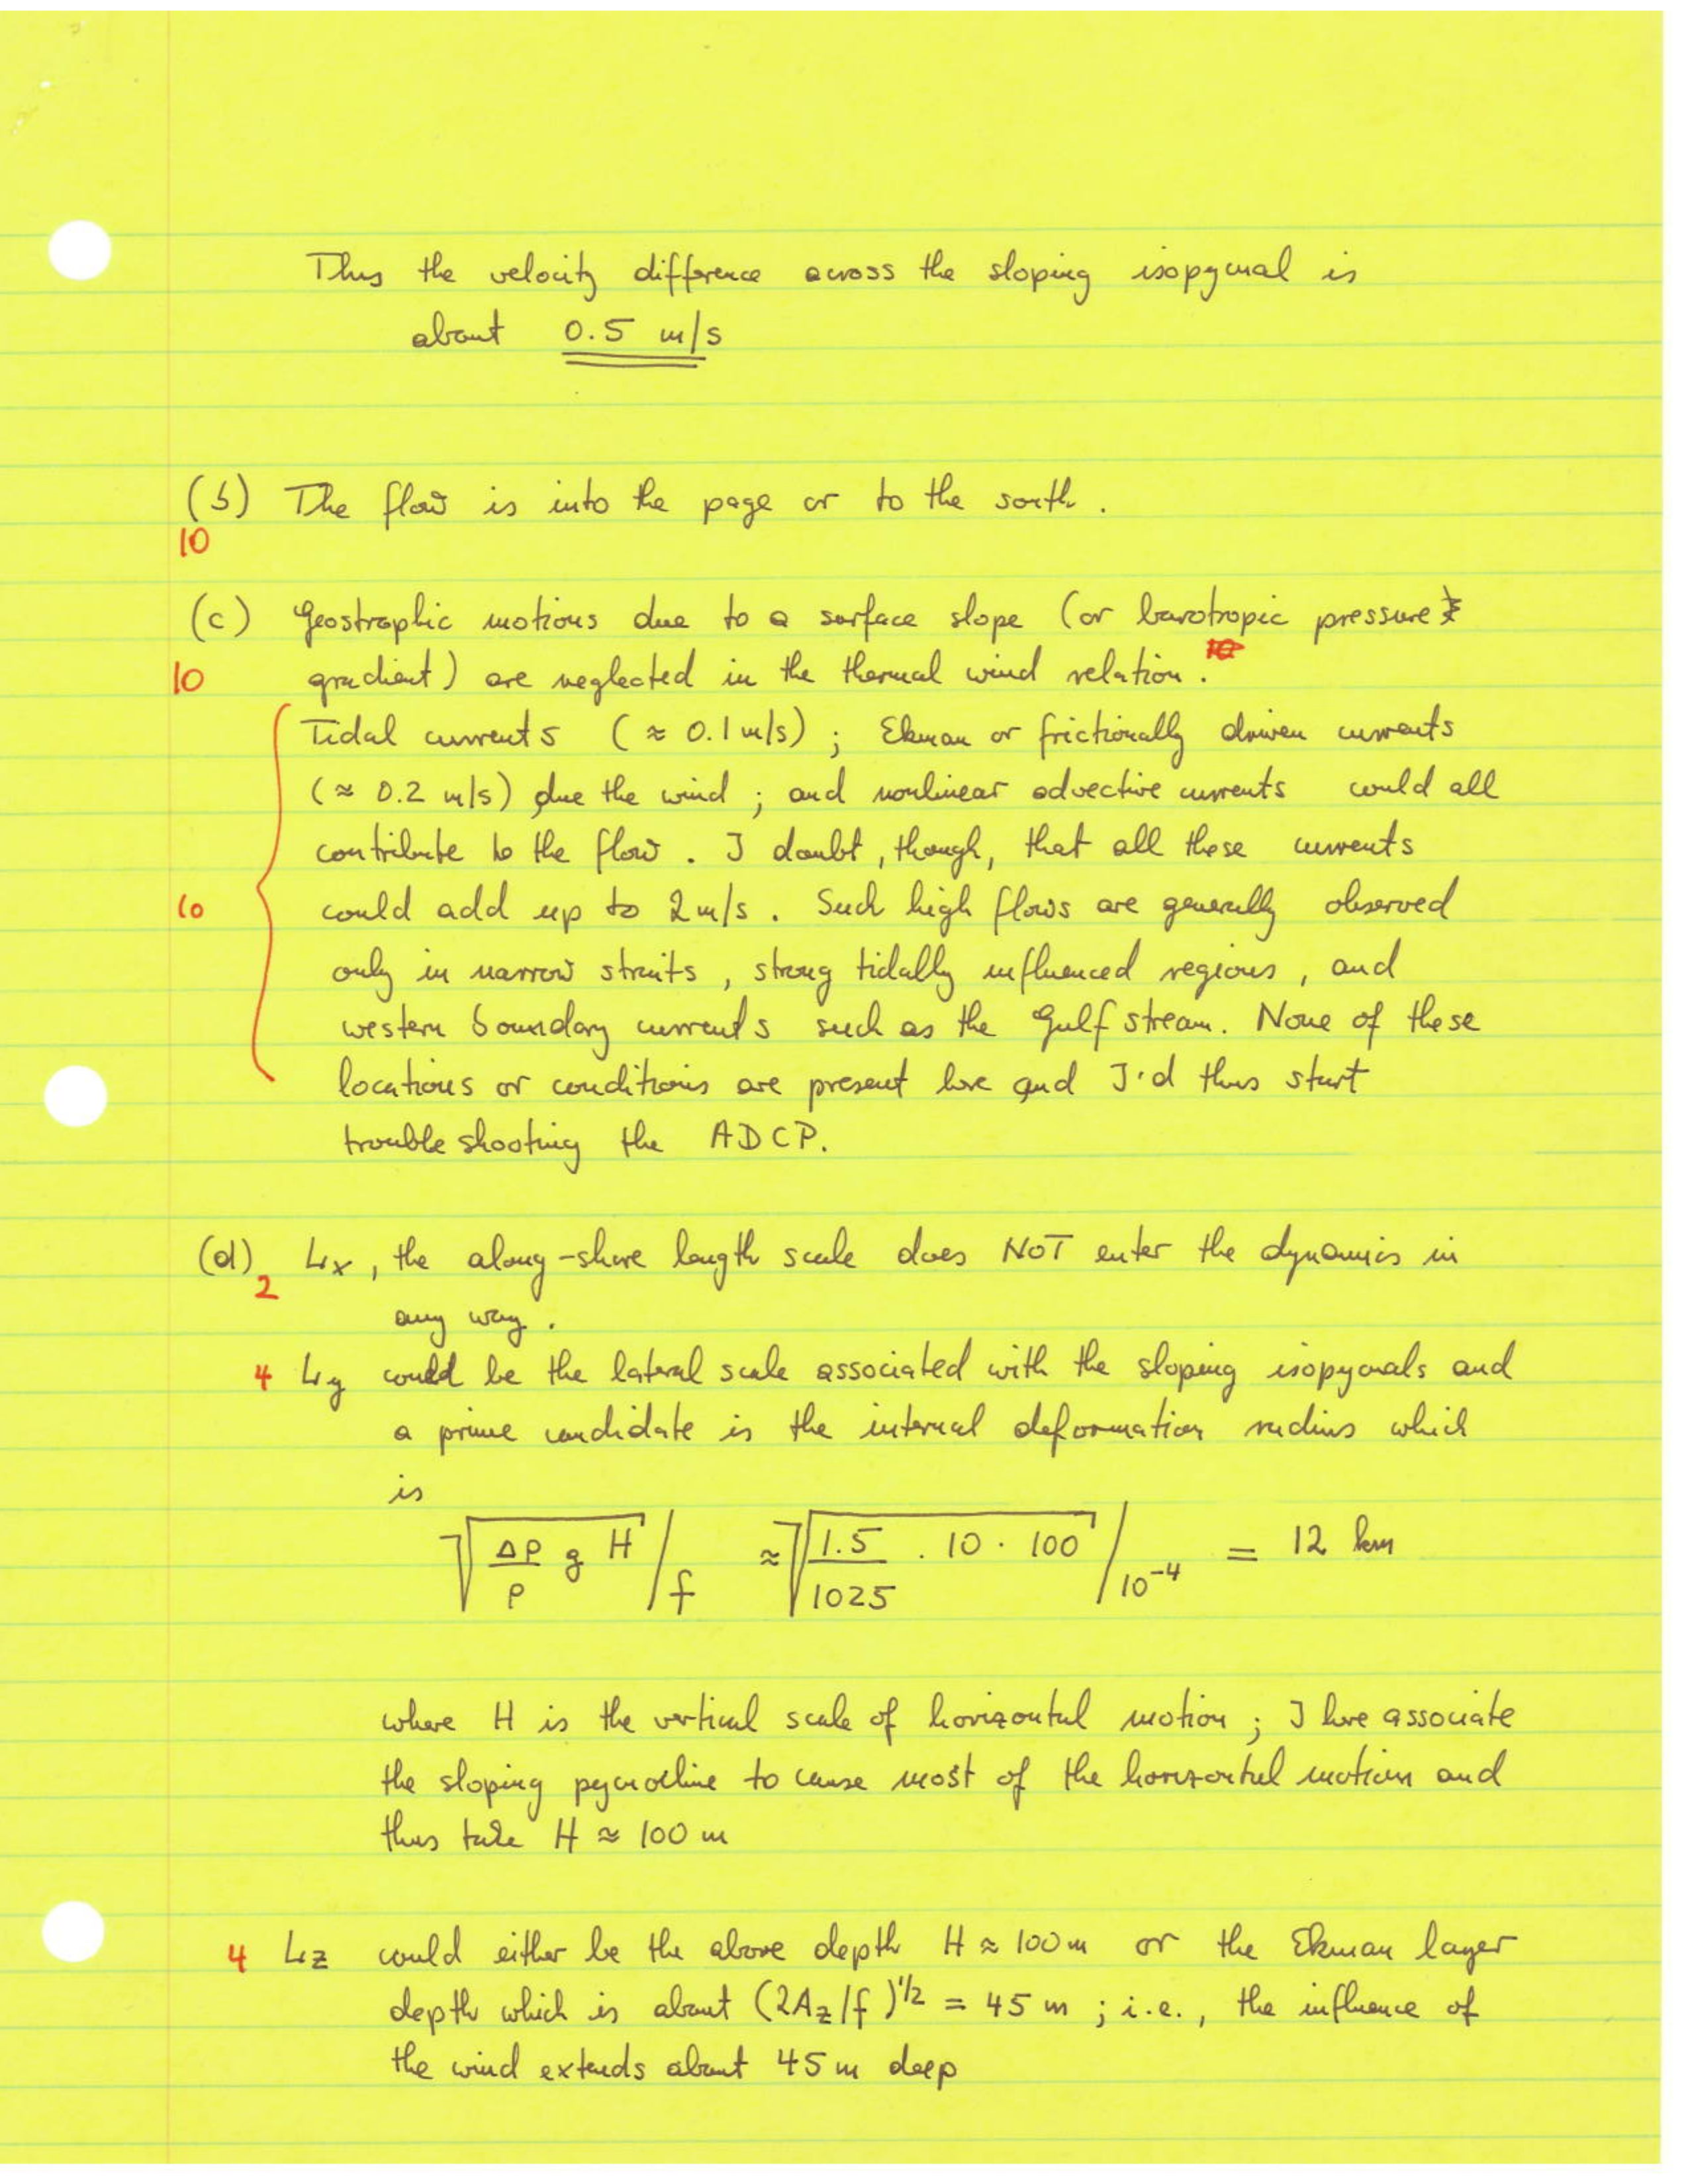 Thus the velocity difference across the sloping isopycnal is
about 0.5 m/s
(b) The flow is into the page or to the south.
10
(c) Geostrophic motions due to a surface slope (or barotropic pressure
10 gradient) are neglected in the thermal wind relation.
Tidal currents (≈ 0.1 m/s) ; Ekman or frictionally driven currents
(≈ 0.2 m/s) due the wind ; and nonlinear advective currents could all
contribute to the flow. I doubt, though, that all these currents
10 could add up to 2 m/s. Such high flows are generally observed
only in narrow straits, strong tidally influenced regions, and
western boundary currents such as the Gulf Stream. None of these
locations or conditions are present here and I'd thus start
trouble shooting the ADCP.
(d) Lx, the along-shore length scale does NOT enter the dynamics in
2
any way.
4 Ly could be the lateral scale associated with the sloping isopycnals and
a prime candidate is the internal deformation radius which
is
√(Δρ/ρ g H) / f ≈ √(1.5/1025 · 10 · 100) / 10⁻⁴ = 12 km
where H is the vertical scale of horizontal motion ; I here associate
the sloping pycnocline to cause most of the horizontal motion and
thus take H ≈ 100 m
4 Lz could either be the above depth H ≈ 100 m or the Ekman layer
depth which is about (2Az/f)^1/2 = 45 m ; i.e., the influence of
the wind extends about 45 m deep